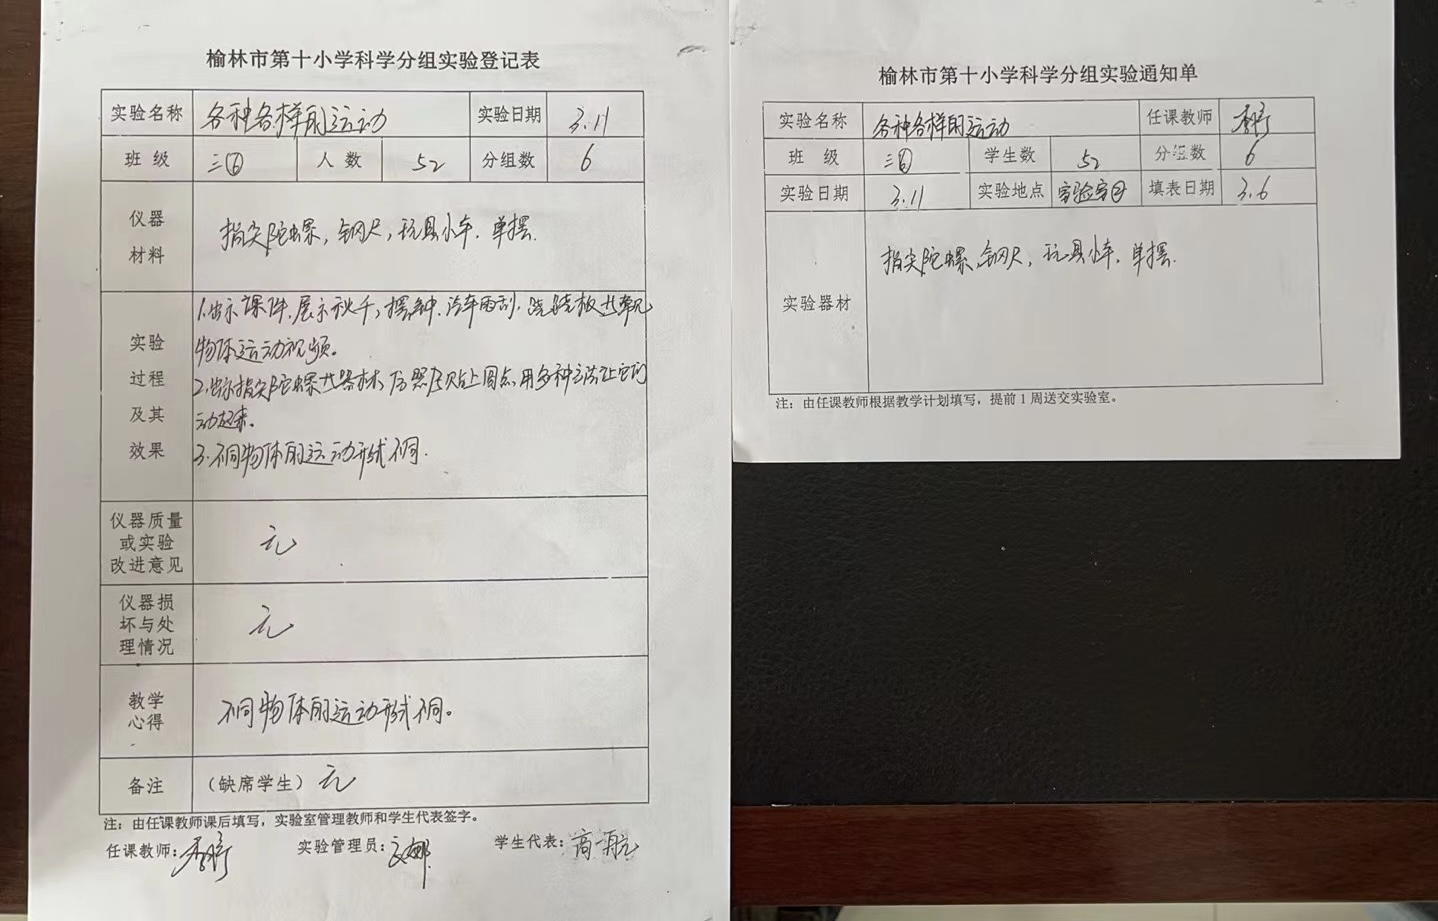 榆林市第十小学科学分组实验登记表
实验名称 各种各样的运动 实验日期 3.11
班 级 三⑥ 人 数 52 分组数 6
仪器
材料
指尖陀螺,钢尺,玩具小车.单摆.
实验
过程
及其
效果
1.出示课件.展示秋千,摆钟.汽车雨刮.跷跷板等常见
物体运动视频。
2.出示指尖陀螺等器材,
贴上圆点,用多种方法让它们
动起来。
3.不同物体的运动形式不同.
仪器质量
或实验
改进意见
无
仪器损
坏与处
理情况
无
教学
心得
不同物体的运动形式不同。
备注 (缺席学生) 无
注:由任课教师课后填写,实验室管理教师和学生代表签字。
任课教师: 实验管理员: 学生代表:高一航
榆林市第十小学科学分组实验通知单
实验名称 各种各样的运动 任课教师
班 级 三⑥ 学生数 52 分组数 6
实验日期 3.11 实验地点 实验室 填表日期 3.6
实验器材
指尖陀螺,钢尺,玩具小车,单摆.
注:由任课教师根据教学计划填写,提前1周送交实验室。